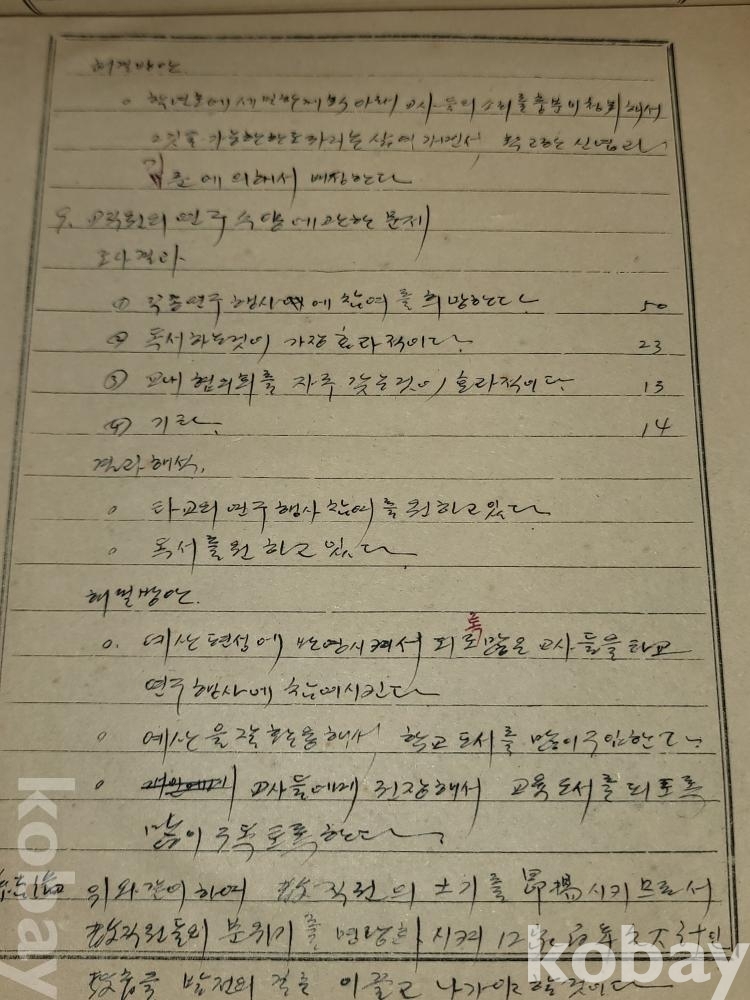 해결방안
○ 학년초에 세밀한 계획 아래 교사들의 소리를 충분히 참작해서
가능한한도 자리는 심어 가면서, 학교장은 신념과
기준에 의해서 배정한다
9. 교직원의 연구 수업에 관한 문제
조사결과
① 각종연구 행사에 참여를 희망한다. 50
② 독서하는것이 가장 효과적이다. 23
③ 교내 협의회를 자주 갖는것이 효과적이다. 13
④ 기타. 14
결과해석.
○ 타교의 연구행사 참여를 원하고 있다
○ 독서를 원하고 있다.
해결방안.
○. 예산편성에 반영시켜서 되도록 많은 교사들을 타교
연구행사에 참여시킨다
○ 예산을 잘 활용해서 학교 도서를 많이 구입한다.
○ 교사들에게 권장해서 교육도서를 되도록
많이 구독토록 한다.
위와같이 하여 敎직원의 士기를 昂揚시키므로서
敎직원들의 분위기를 명랑화시켜 12
발전의 길로 이끌고 나가야 할것이다
kobay
kobay